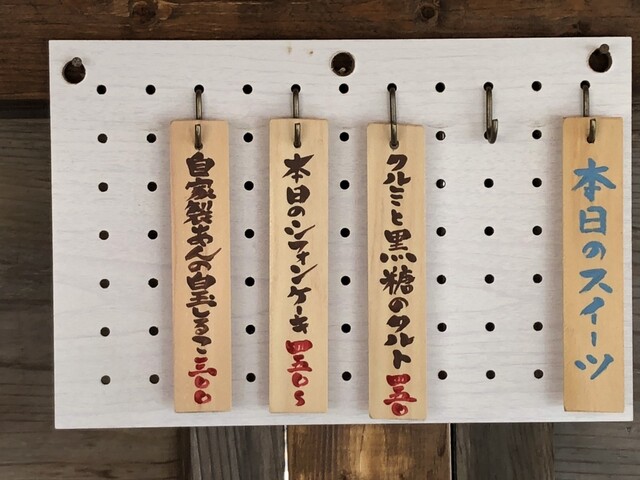 本日のスイーツ
クルミと黒糖のタルト 四五〇
本日のシフォンケーキ 四五〇〜
自家製あんの白玉しるこ 三〇〇